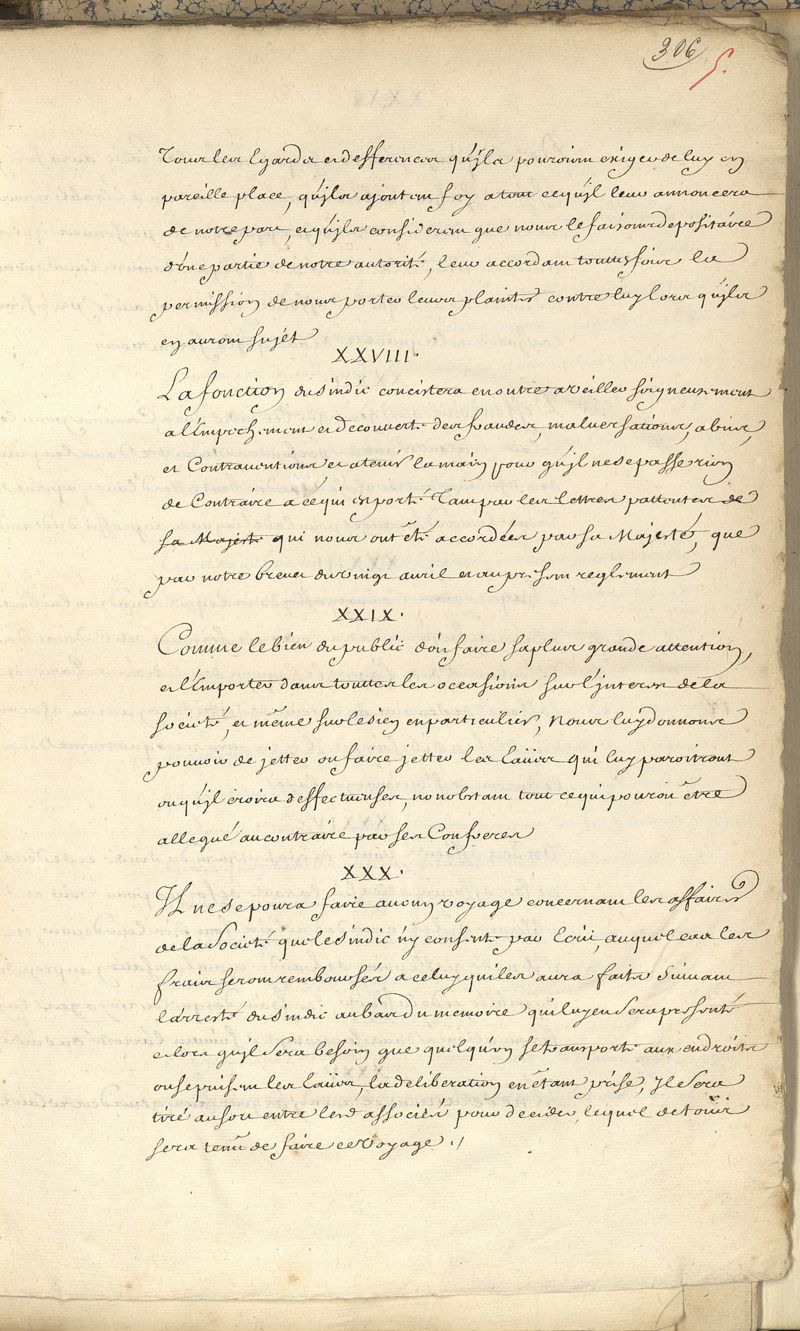 306
5.
Tous les Egards et defferences qu'jls pouroient exiger de luy en
pareille place, qu'jls ajoutent foy a tout ce qu'jl leur annoncera
de notre part, et qu'jls considerent que nous le faisons depositaire
d'une partie de notre autorité, leur accordam touttefois la
permission de nous porter leurs plaintes contre luy lors qu'jls
en auront sujet
XXVIII.
La fonction du sindic concistera en outre a veiller soigneusement
a l'Empechement et decouverte des fraudes, malversations, abus,
et Contraventions et a tenir la main pour qu'jl ne se passe rien
de Contraire a ce qui est porté Tant par les lettres pattentes de
sa Majesté qui nous ont été accordées par sa Majesté, que
par notre brevet du vingt avril et au present reglement
XXIX.
Comme le bien du public doit faire sa plus grande attention,
et l'Emporter dans touttes les occasions sur l'interest de la
société, et même sur le sien en particulier, Nous luy donnons
pouvoir de jetter ou faire jetter les Eaües qui luy paroitront
ou qu'jl croira deffectueuses, nonobstant tout ce qui pouroit être
allegué au contraire par ses Confreres
XXX.
Il ne se poura faire aucun voyage concernant les affaires
de la Societé que le sindic n'y consente par Ecrit, auquel cas les
frais seront remboursés a celuy qui les aura faits suivant
l'arresté du sindic au bas du memoire qui luy en sera presenté
et lors qu'jl sera besoin que quelqu'un se transporte aux endroits
ou se puisent les Eaües, la deliberation en étant prise, Il sera
tiré au sort entre lesd associés pour decider lequel de tous
sera tenu de faire ce voyage ./